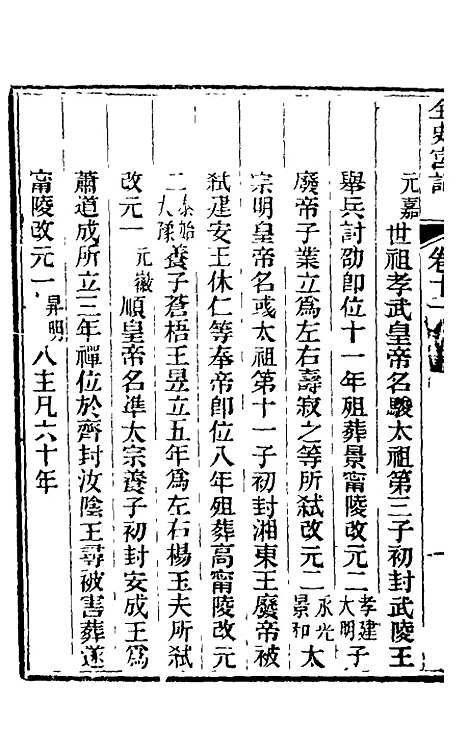 全史宮詞
卷十一
元嘉世祖孝武皇帝名駿太祖第三子初封武陵王
舉兵討劭卽位十一年殂葬景甯陵改元二孝建大明子
廢帝子業立爲左右壽寂之等所弑改元二永光景和太
宗明皇帝名彧太祖第十一子初封湘東王廢帝被
弑建安王休仁等奉帝卽位八年殂葬高甯陵改元
二泰始太豫養子蒼梧王昱立五年爲左右楊玉夫所弑
改元一元徽順皇帝名準太宗養子初封安成王爲
蕭道成所立三年禪位於齊封汝陰王尋被害葬遂
甯陵改元一昇明八主凡六十年